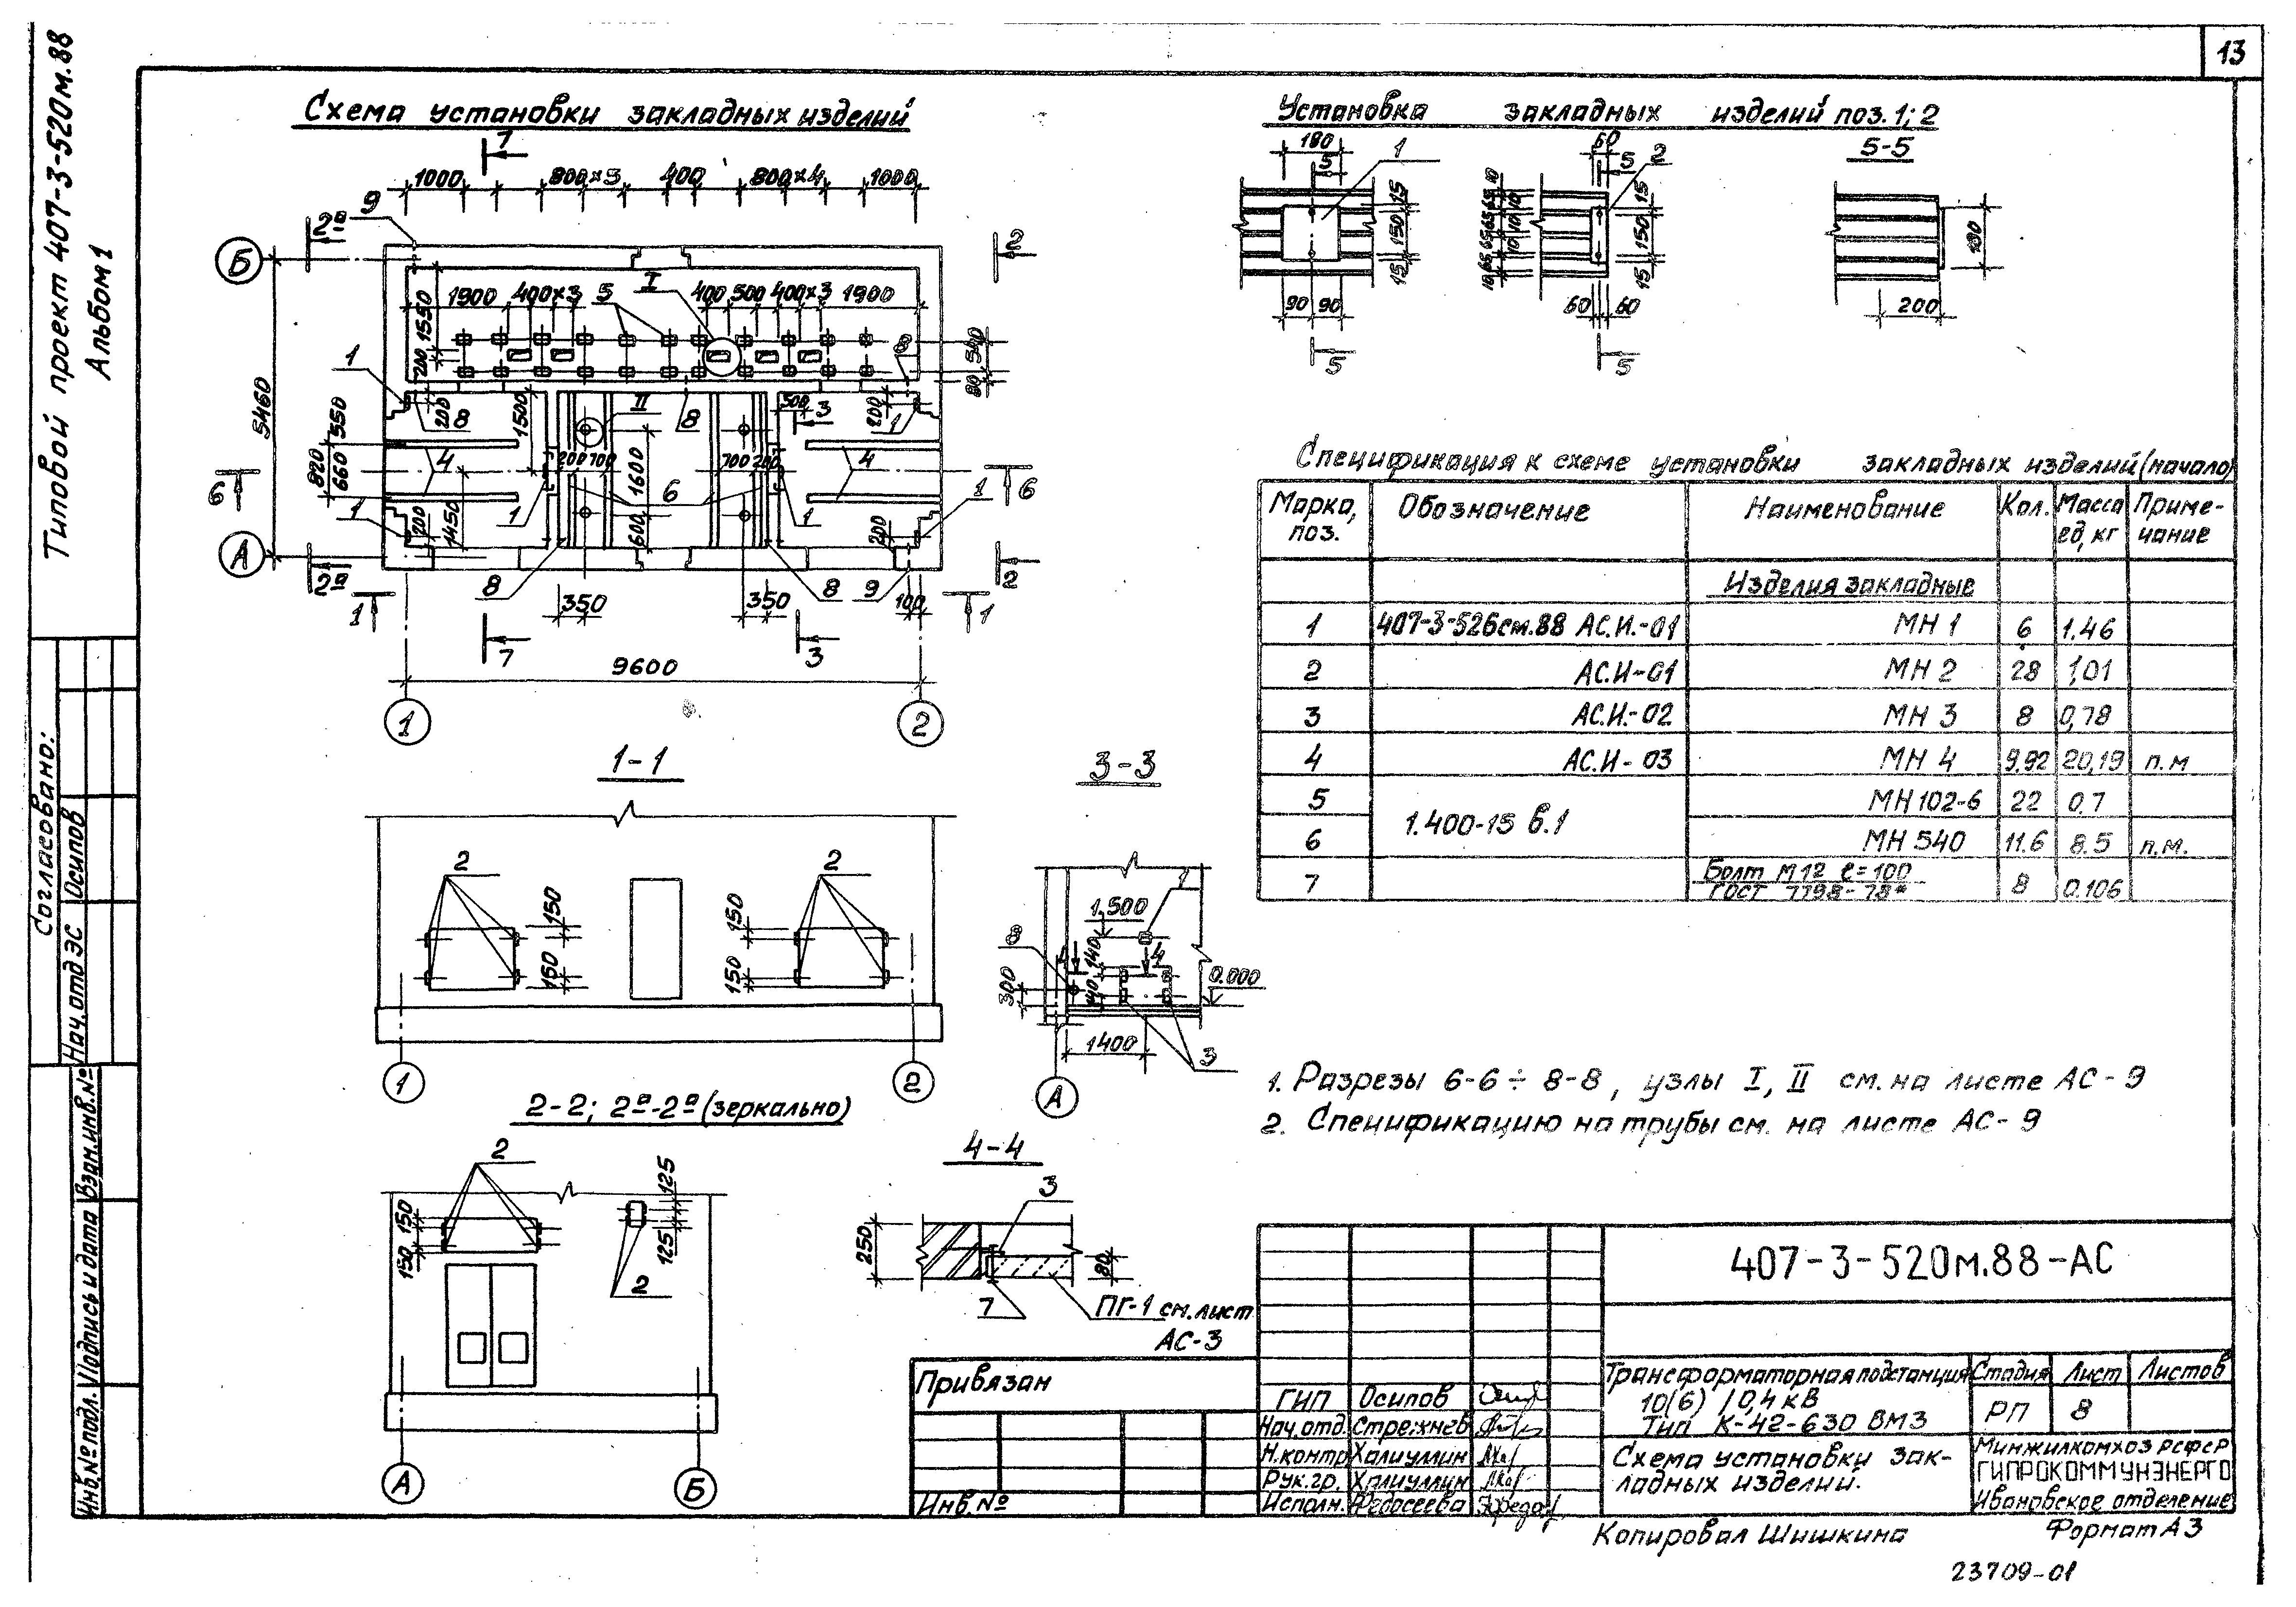 13
Типовой проект 407-3-520м.88
Альбом 1
Схема установки закладных изделий
7
1000 800×3 400 800×4 1000
9
2ª
2
Б
1900 400×3 5 I 400 500 400×3 1900
1550
200
8
540
80
1
1
5460
550
820
660
200
8
1500
II
8
500
3
200
4
200 700
1600
700 200
4
6
6
6
1
1450
200
1
600
1
200
1
А
2ª
8
8
9
2
1
350
350
100
1
7
3
9600
1
2
Установка закладных изделий поз. 1; 2
180
5
1
15
150
15
90 90
5
60
5
2
10
65
65
65
65
10
10
10
10
15
150
15
60 60
5
5-5
180
200
Спецификация к схеме установки закладных изделий (начало)
Марка, поз. Обозначение Наименование Кол. Масса ед, кг Приме-чание
Изделия закладные
1 407-3-526см.88 АС.И.-01 МН 1 6 1.46
2 АС.И-01 МН 2 28 1,01
3 АС.И.-02 МН 3 8 0,78
4 АС.И-03 МН 4 9.92 20,19 п.м
5 1.400-15 в.1 МН 102-6 22 0.7
6 МН 540 11.6 8.5 п.м.
7 Болт М12 ℓ=100 ГОСТ 7798-78* 8 0.106
1-1
2
2
150
150
150
150
1
2
3-3
1
1.500
8
4
140
4
300
140
0.000
1400
3
А
1. Разрезы 6-6 ÷ 8-8, узлы I, II см. на листе АС-9
2. Спецификацию на трубы см. на листе АС-9
2-2; 2ª-2ª (зеркально)
2
150
150
125
125
2
А
Б
4-4
3
250
80
7
ПГ-1 см. лист
АС-3
407-3-520м.88-АС
Трансформаторная подстанция
10(6) / 0,4 кВ
Тип К-42-630 ВМЗ
Стадия Лист Листов
РП 8
Схема установки зак-
ладных изделий.
Минжилкомхоз РСФСР
ГИПРОКОММУНЭНЕРГО
Ивановское отделение
ГИП Осипов
Нач.отд. Стрежнев
Н.контр Халиуллин
Рук.гр. Халиуллин
Исполн. Федосеева
Привязан
Инв.№
Согласовано:
Нач.отд ЭС Осипов
Взам.инв.№
Подпись и дата
Инв.№подл.
Копировал Шишкина
Формат А3
23709-01